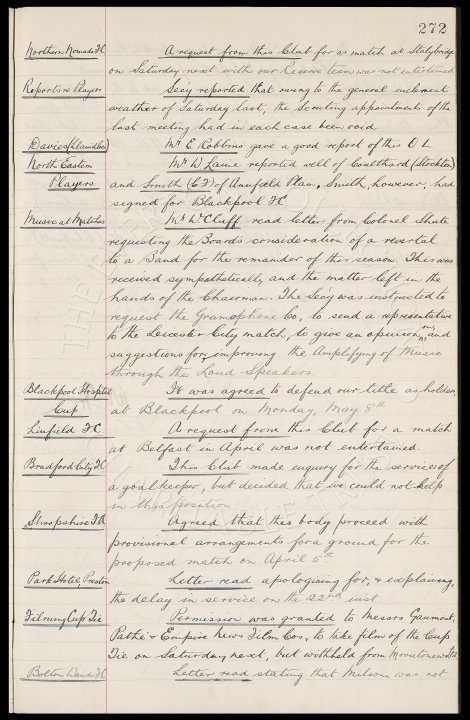 272
Northern Nomads FC A request from this Club for a match at Stalybridge
on Saturday next with our Reserve team was not entertained
Reports re Players Secy reported that owing to the general inclement
weather of Saturday last, the scouting appointments of the
last meeting had in each case been void.
Davies (Llanidloes) Mr E Robbins gave a good report of this O L
North Eastern Mr W Lawe reported well of Coulthard (Stockton)
Players and Smith (C F) of Annfield Plain, Smith, however, had
signed for Blackpool FC
Music at Matches Mr W McCluff read letter from Colonel Shute
requesting the Board's consideration of a revertal
to a Band for the remainder of this season. This was
received sympathetically, and the matter left in the
hands of the Chairman. The Secy was instructed to
request the Gramophone Co, to send a representative
to the Leicester City match, to give an opinion, and
suggestions for improving the Amplifying of Music
through the Loud Speakers.
Blackpool Hospital It was agreed to defend our title as holders,
Cup at Blackpool on Monday, May 8th
Linfield FC A request from this Club for a match
at Belfast in April was not entertained.
Bradford City FC This Club made enquiry for the services of
a goalkeeper, but decided that we could not help
in this position
Shropshire FA Agreed that this body proceed with
provisional arrangements for a ground for the
proposed match on April 5th
Park Hotel, Preston Letter read apologising for, & explaining,
the delay in service on the 22nd inst.
Filming Cup Tie Permission was granted to Messrs Gaumont,
Pathe & Empire News Film Cos, to take films of the Cup
Tie on Saturday next, but withheld from Movietonews Ltd
Bolton Wands FC Letter read stating that Milsom was not